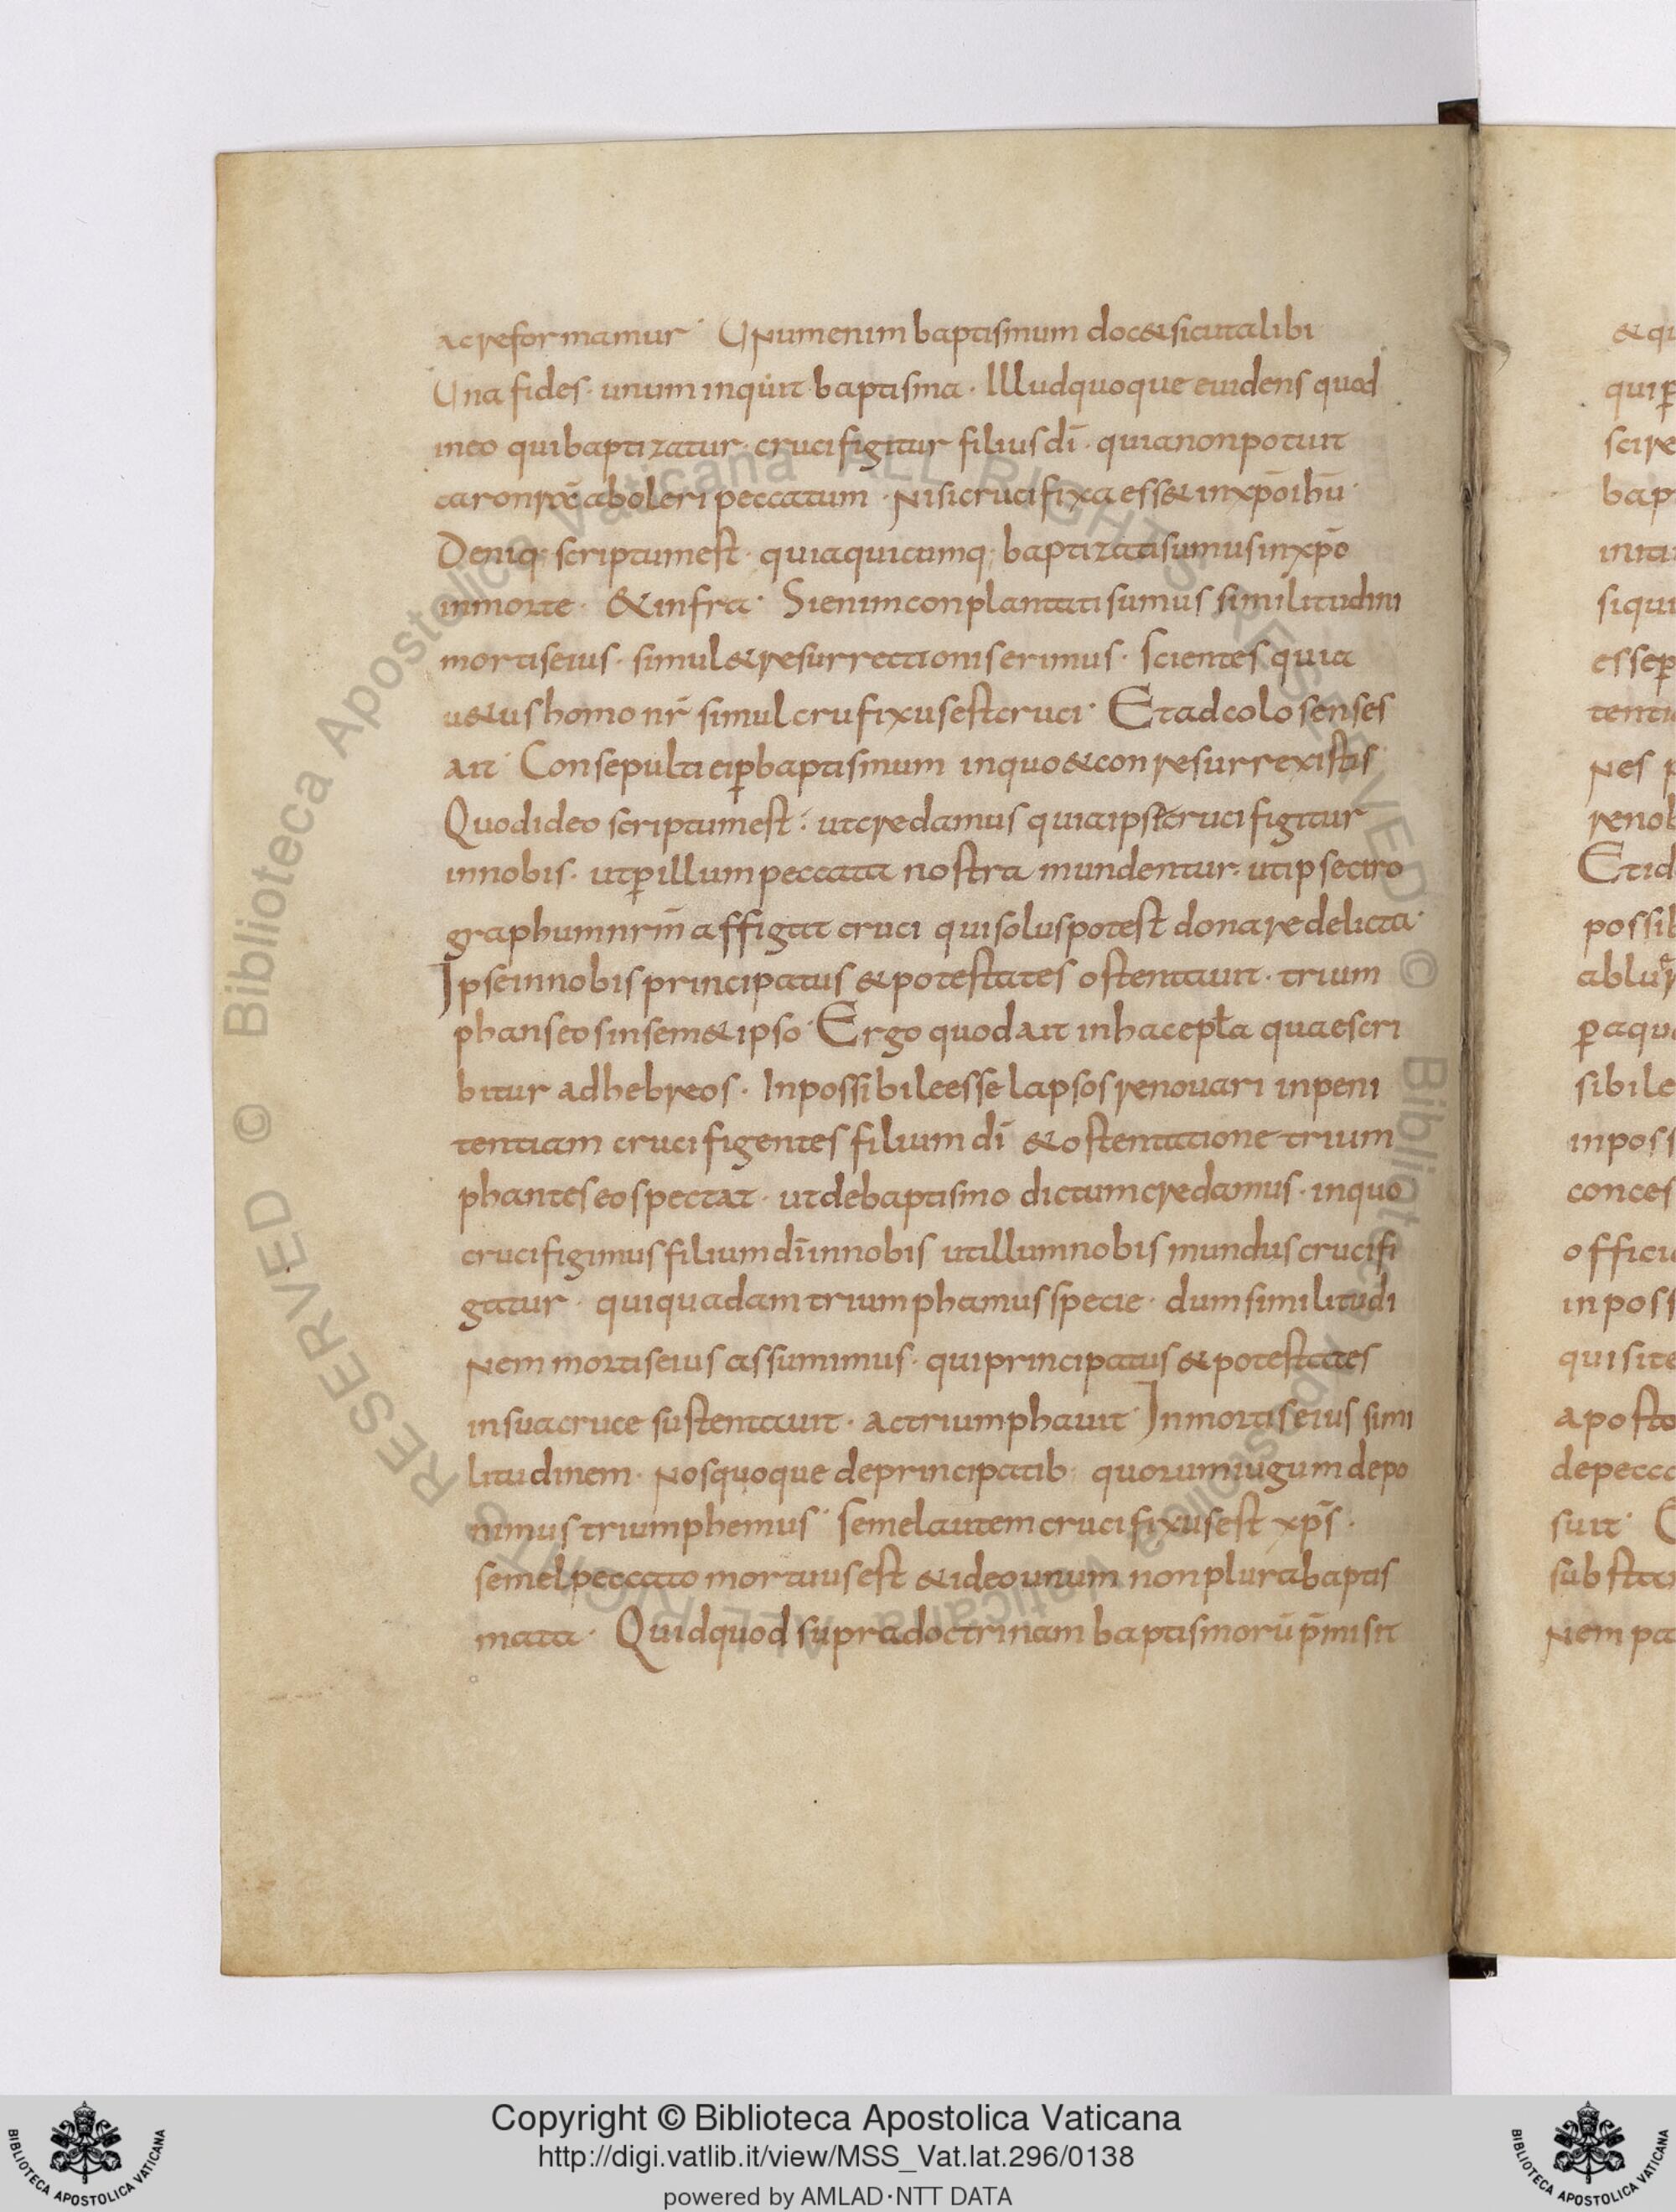 ac reformamur· Unum enim baptismum doc& sicut alibi
Una fides· unum inquit baptisma· Illud quoque euidens quod
in eo qui baptizatur· crucifigitur filius dī· quia non potuit
caro nrā aboleri peccatum· Nisi crucifixa ess& in xpō ihū·
Deniq; scriptum est· quia quicumq; baptizati sumus in xpō
in morte· & infra· Si enim conplantati sumus similitudini
mortis eius· simul & resurrectionis erimus· scientes quia
u&us homo nr̄ simul crufixus est cruci· Et ad colosenses
ait· Consepulti ei p̄ baptismum in quo & conresurrexistis
Quod ideo scriptum est· ut credamus quia ipse crucifigitur
in nobis· ut p̄ illum peccata nostra mundentur· ut ipse ciro
graphum nrm̄ affigat cruci qui solus potest donare delicta·
Ipse in nobis principatus & potestates ostentauit· trium
phans eos in sem&ipso· Ergo quod ait in hac epła quae scri
bitur ad hebreos· Inpossibile esse lapsos renouari in peni
tentiam crucifigentes filium dī & ostentatione trium
phantes eo spectat· ut de baptismo dictum credamus· in quo
crucifigimus filium dī in nobis ut illum nobis mundus crucifi
gatur· qui quadam triumphamus specie· dum similitudi
nem mortis eius assumimus· qui principatus & potestates
in sua cruce sustentauit· ac triumphauit· In mortis eius simi
litudinem· Nos quoque de principatib; quorum iugum depo
nimus triumphemus· semel autem crucifixus est xps̄·
semel peccato mortuus est & ideo unum non plura baptis
mata· Quid quod supra doctrinam baptismorū p̄misit
Copyright © Biblioteca Apostolica Vaticana
http://digi.vatlib.it/view/MSS_Vat.lat.296/0138
powered by AMLAD·NTT DATA
BIBLIOTECA APOSTOLICA VATICANA
BIBLIOTECA APOSTOLICA VATICANA